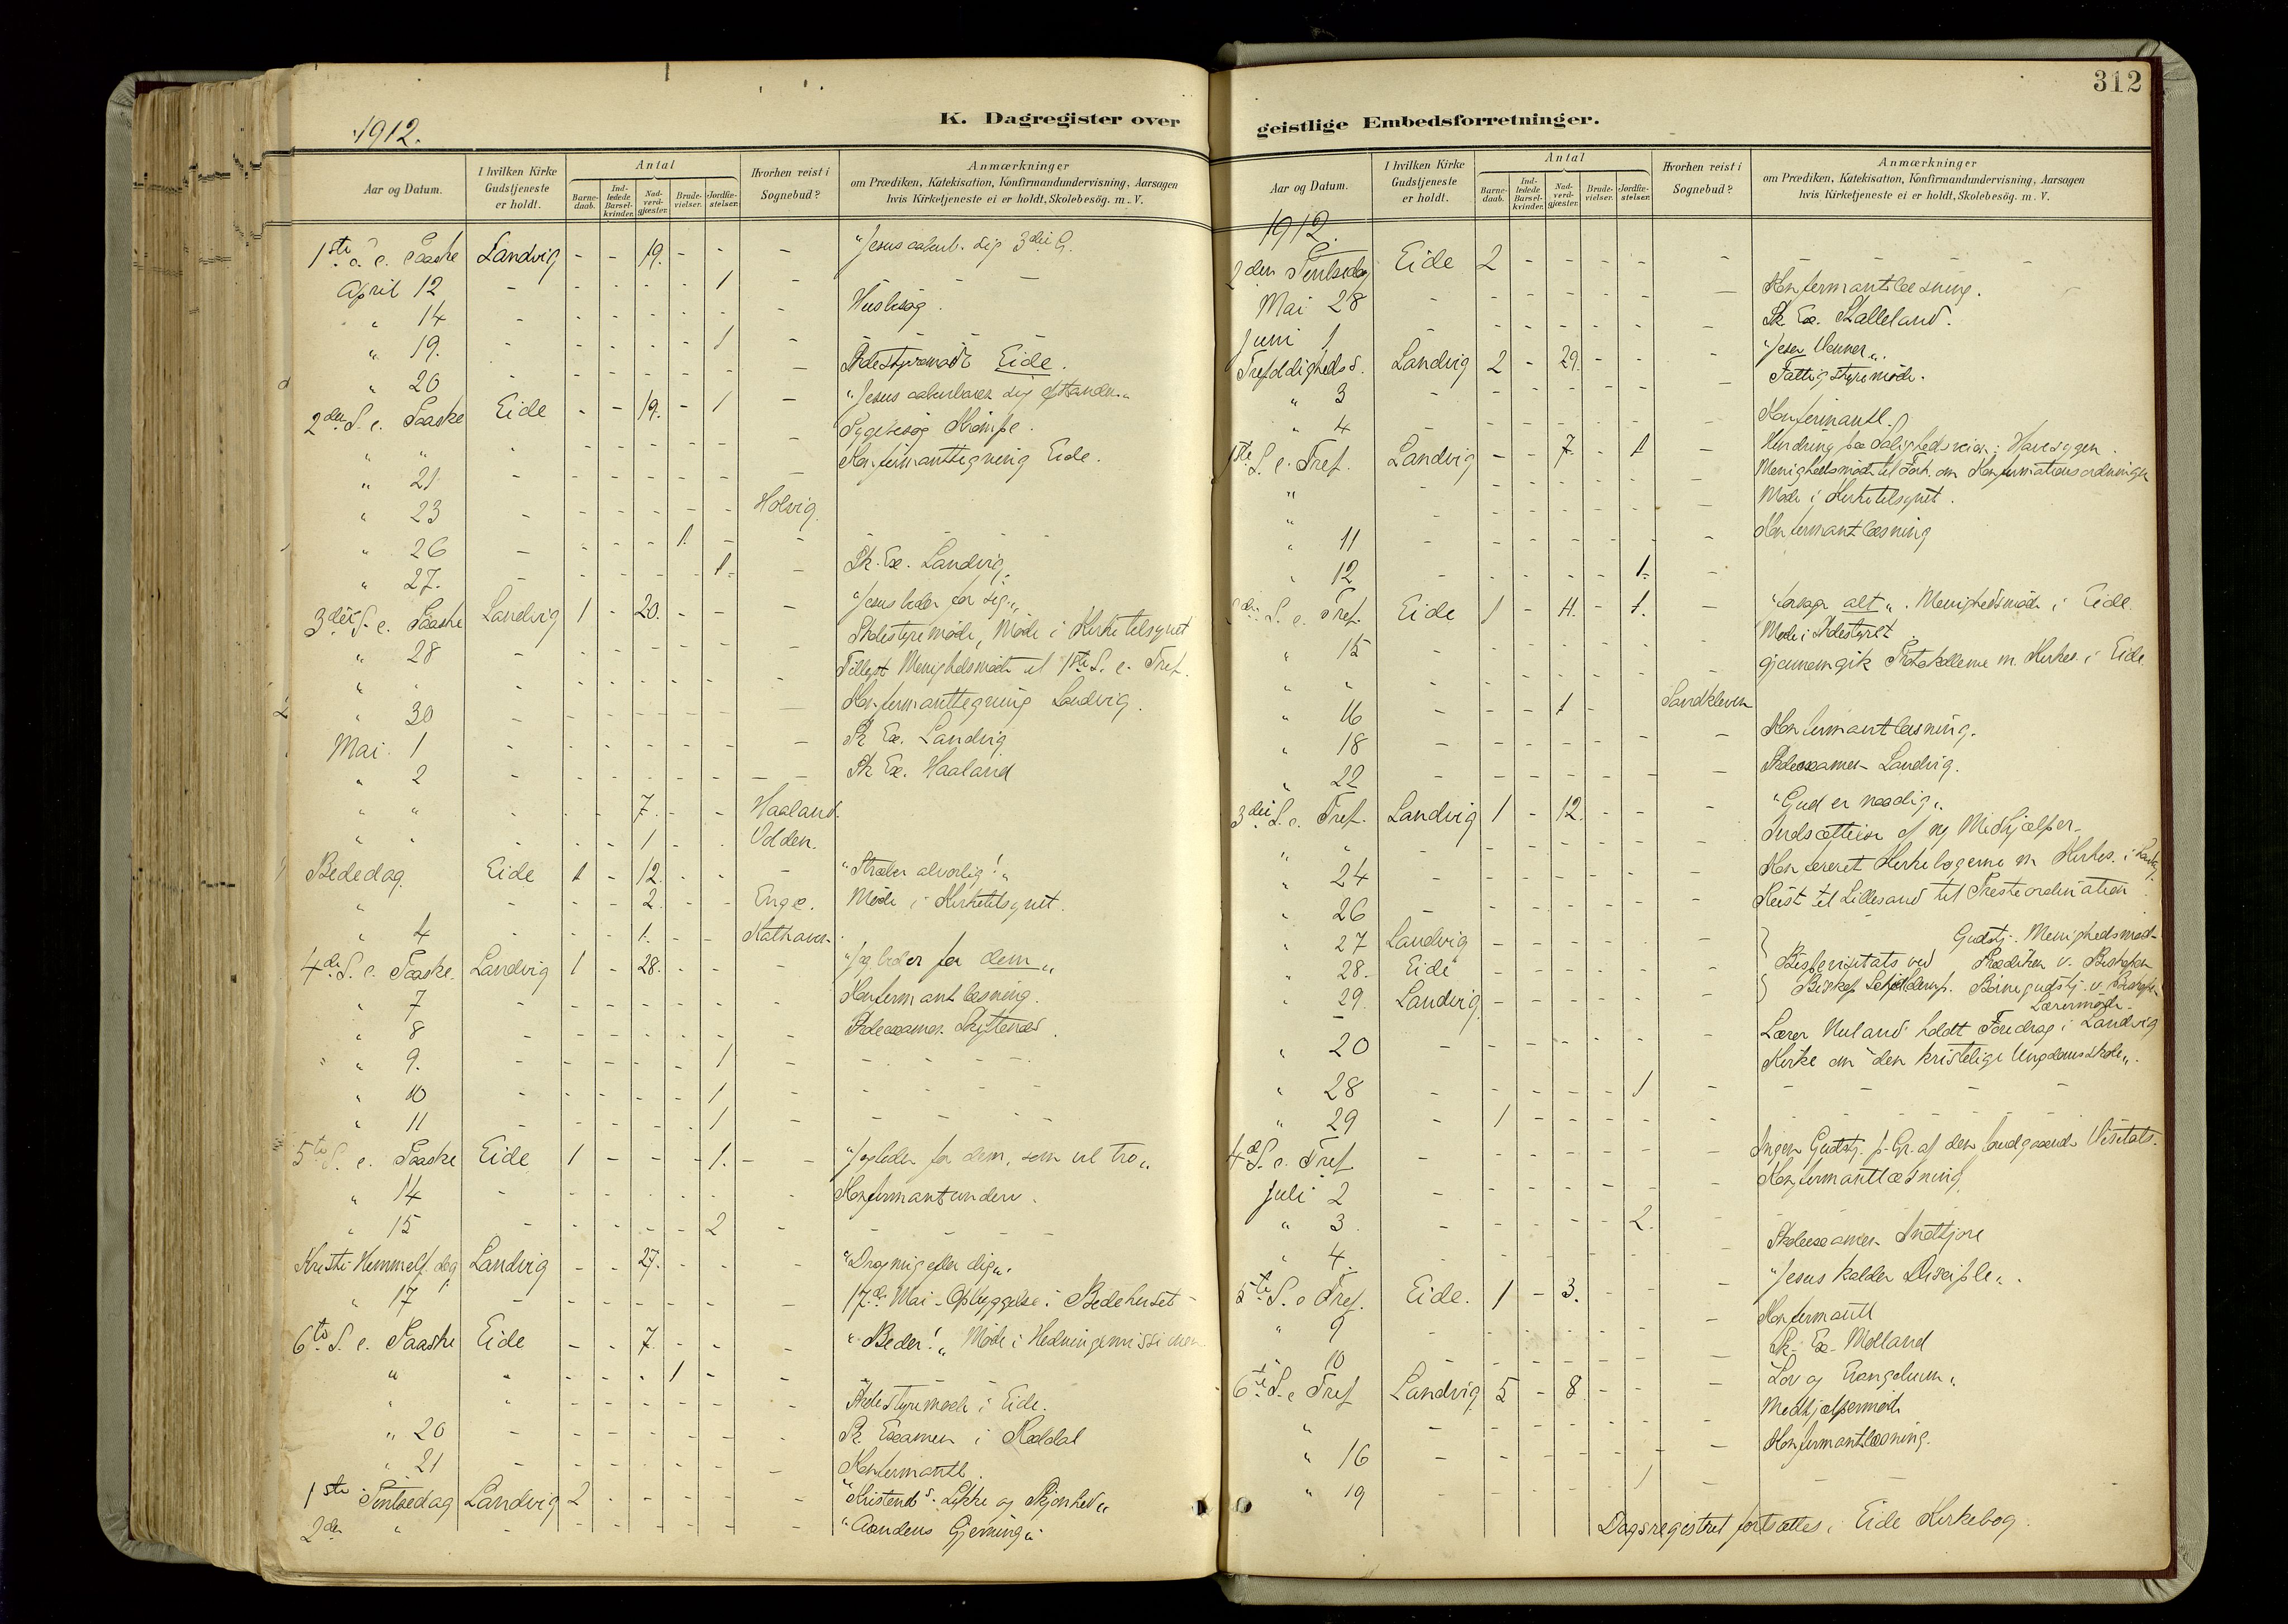 1912.
K. Dagregister over
Aar og Datum. | I hvilken Kirke Gudstjeneste er holdt. | Antal | Barnedaab. | Indledede Barselkvinder. | Nadverdgjæster. | Brudevielser. | Jordfæstelser. | Hvorhen reist i Sognebud? | Anmærkninger om Prædiken, Katekisation, Konfirmandundervisning, Aarsagen hvis Kirketjeneste ei er holdt, Skolebesøg. m. V.
1ste S. e. Paaske Landvig - - 19. - - - "Jesus aabenb. sig 3die G.
April 12 - - - - - 1 -
" 14 - - - - - - - Husbesøg.
" 19. - - - - - 1 -
" 20 - - - - - - - Skolestyremøde Eide.
2den S. e. Paaske Eide - - 19. - 1 - "Jesus aabenbarer sig
" " - - - - - - Sygebesøg
" 21 - - - - - - - Konfirmanttegning Eide.
" 23 - - - - - - Holvig.
" 26 - - - - 1 - -
" 27. - - - - - 1. - Sk. Ex. Landvig.
3die S. e. Paaske Landvig 1 - 20. - - - "Jesus beder for sig"
" 28 - - - - - - - Skolestyremøde, Møde i Kirketilsynet
" " - - - - - - Tillyst Menighedsmøde til 1ste S. e. Tref.
" 30 - - - - - - - Konfirmanttegning Landvig.
Mai 1 - - - - - - - Sk Ex. Landvig
" 2 - - - - - - - Sk Ex. Haaland
" " - - - 7. - - Haaland.
" " - - - 1 - - Udden.
Bededag. Eide 1 - 12. - - - "Stræber alvorlig!"
" - - - 2. - - Enge. Møde i Kirketilsynet.
" 4 - - - 1. - -
4de S. e. Paaske. Landvig 1 - 28. - - - "Jeg beder for dem"
" 7 - - - - - - - Konfirmantlæsning.
" 8 - - - - - - - Skoleexamen
" 9. - - - - - 1 -
" 10 - - - - - 1 -
" 11 - - - - - 1 -
5te S. e. Paaske Eide 1 - - - 1. - - "Jeg beder for dem, som vil tro"
" 14 - - - - - - - Konfirmantunderv.
" 15 - - - - - 2 -
Kristi Himmelf. dag Landvig - - 27. - - - "Drag mig efter dig".
" 17 - - - - - - - 17de Mai - Opbyggelse i Bedehuset -
6te S. e. Paaske Eide - - 7. - - - "Beder!" Møde i Hedningemissionen
" " - - - 1 - -
" " - - - - - - Skolestyremøde i Eide.
" 20 - - - - - - - Sk. Examen i Roddal
" 21 - - - - - - - Konfirmantl.
1ste Pintsedag Landvig 2 - - - - - "Kristend s. Lykke og Skjønhed"
2den " - - - - - - - "Aandens Gjerning".
312
geistlige Embedsforretninger.
Aar og Datum. | I hvilken Kirke Gudstjeneste er holdt. | Antal | Barnedaab. | Indledede Barselkvinder. | Nadverdgjæster. | Brudevielser. | Jordfæstelser. | Hvorhen reist i Sognebud? | Anmærkninger om Prædiken, Katekisation, Konfirmandundervisning, Aarsagen hvis Kirketjeneste ei er holdt, Skolebesøg. m. V.
1912.
2den Pintsedag Eide 2 - - - - -
Mai 28 - - - - - - - Konfirmantlæsning.
Juni 1 - - - - - - - Sk. Ex. Kalleland.
Trefoldigheds. Landvig 2 - 29. - - - "Jesu Venner".
" 3 - - - - - - - Fattigstyremøde.
" 4 - - - - - - - Konfirmantl.
1ste S. e. Tref. Landvig - - 7. - 1 - Hindring paa Salighedsveien: Havesygen.
" - - - - - - - Menighedsmøde til Forh. om Konfirmationsordningen
" - - - - - - - Møde i Kirketilsynet.
" 11 - - - - - - - Konfirmantlæsning
" 12 - - - - - 1. -
2den S. e. Tref. Eide 1 - 11. - 1. - "Forsage alt". Menighedsmøde i Eide.
" 15 - - - - - - - Møde i Skolestyret.
" " - - - - - - gjennemgik Protokollerne m. Kirkes. i Eide.
" 16 - - - 1 - Sandkleven
" 18 - - - - - - - Konfirmantlæsning.
" 22 - - - - - - - Skoleexamen Landvig.
3die S. e. Tref. Landvig 1 - 12. - - - "Gud er naadig".
" " - - - - - - Indsættelse af ny Medhjælper.
" 24 - - - - - - - Konfereret Kirkebøgerne m Kirkes. i Landv.
" 26 - - - - - - - Reist til Lillesand til Presteordination
" 27 Landvig - - - - - - Gudstj. Menighedsmøde
" 28. Eide - - - - - - Bispevisitats ved Prædiken v. Biskopen
" 29. Landvig - - - - - - Biskop Schjelderup. Børnegudstj. v. Biskopen
Lærermøde.
" 20 - - - - - - - Lærer Nuland holdt Foredrag i Landvig
Kirke om "den kristelige Ungdomsskole".
" 28 - - - - - 1 -
" 29 - 1 - - - - -
4de S. e. Tref. - - - - - - - Ingen Gudstj. p. Gr. af den foregaaende Visitats.
Juli 2 - - - - - - - Konfirmantlæsning
" 3. - - - - - 2. -
" 4. - - - - - - - Skoleexamen Indtjøre
5te S. e Tref. Eide. 1 - 3. - - - "Jesus kalder Disciple".
" 9 - - - - - - - Konfirmantl
" 10 - - - - - - - Sk. Ex. Molland
6te S. e Tref Landvig 5 - 8. - - - "Lov og Evangelium"
" - - - - - - - Medhjælpermøde
" 16 - - - - - - - Konfirmantlæsning.
" 19 - - - - - 1 -
Dagsregistret fortsættes i Eide Kirkebog.